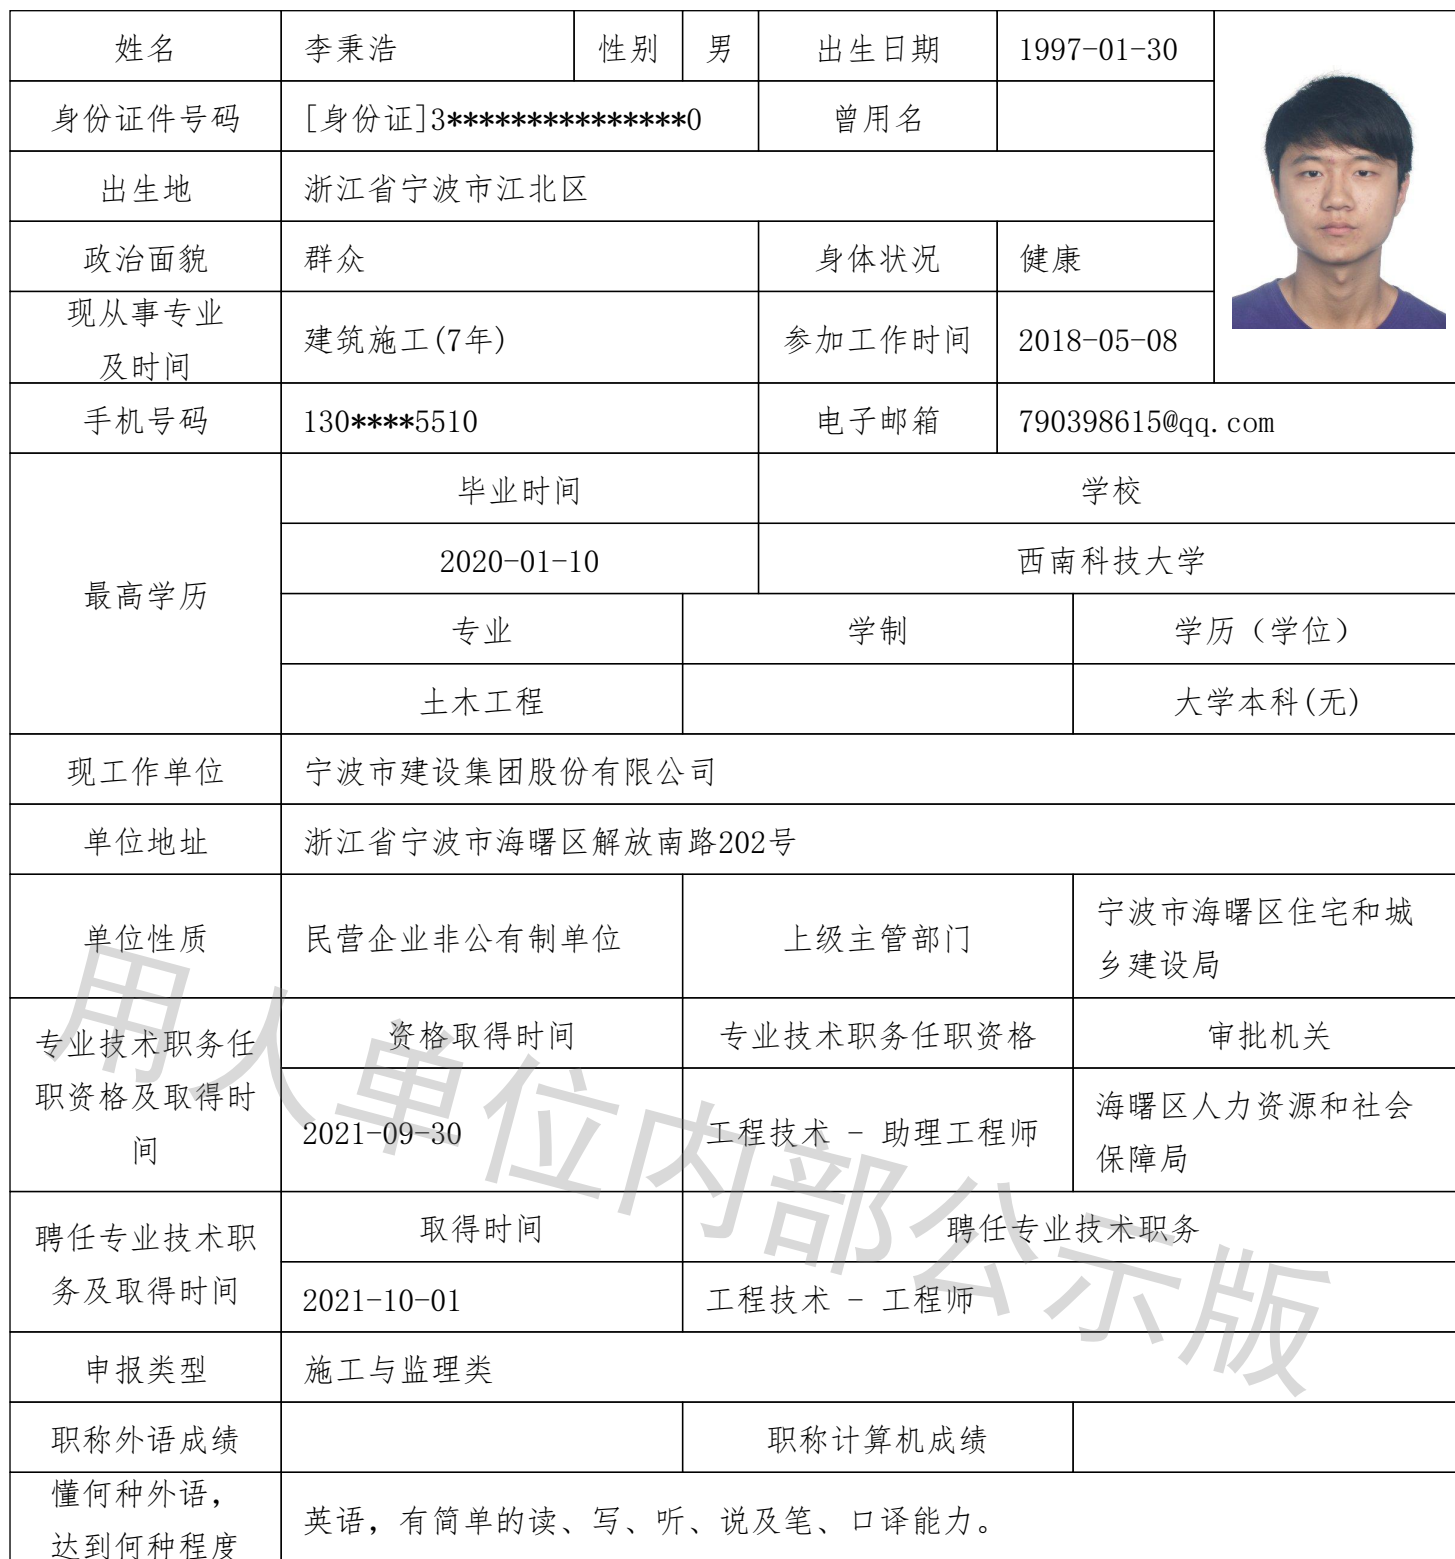 姓名 李秉浩 性别 男 出生日期 1997-01-30
身份证件号码 [身份证]3***************0 曾用名
出生地 浙江省宁波市江北区
政治面貌 群众 身体状况 健康
现从事专业
及时间
建筑施工(7年) 参加工作时间 2018-05-08
手机号码 130****5510 电子邮箱 790398615@qq.com
最高学历
毕业时间 学校
2020-01-10 西南科技大学
专业 学制 学历（学位）
土木工程 大学本科(无)
现工作单位 宁波市建设集团股份有限公司
单位地址 浙江省宁波市海曙区解放南路202号
单位性质 民营企业非公有制单位 上级主管部门
宁波市海曙区住宅和城
乡建设局
专业技术职务任
职资格及取得时
间
资格取得时间 专业技术职务任职资格 审批机关
2021-09-30 工程技术 - 助理工程师
海曙区人力资源和社会
保障局
聘任专业技术职
务及取得时间
取得时间 聘任专业技术职务
2021-10-01 工程技术 - 工程师
申报类型 施工与监理类
职称外语成绩 职称计算机成绩
懂何种外语，
达到何种程度
英语，有简单的读、写、听、说及笔、口译能力。
用人单位内部公示版